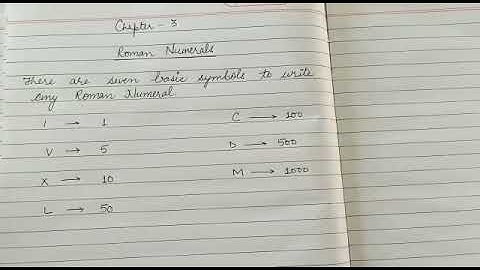 Chapter - 3
Roman Numerals
There are seven basic symbols to write
any Roman Numeral
I → 1
V → 5
X → 10
L → 50
C → 100
D → 500
M → 1000